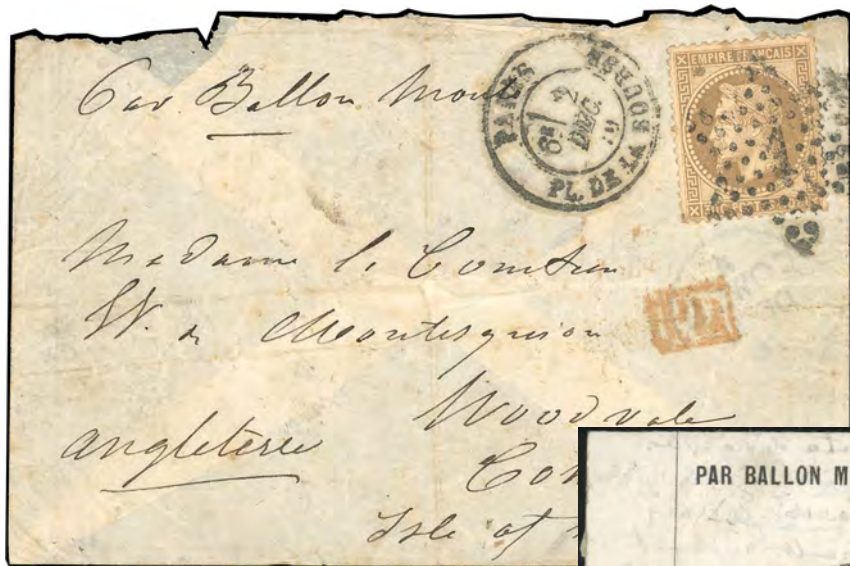 Par Ballon Mon
PARIS
PL. DE LA BOURSE
6E 2
DEC.
EMPIRE FRANÇAIS
Madame la Comtesse
W. de Montesquiou
Woodvale
Angleterre
Co
Isle of
PD
PAR BALLON M